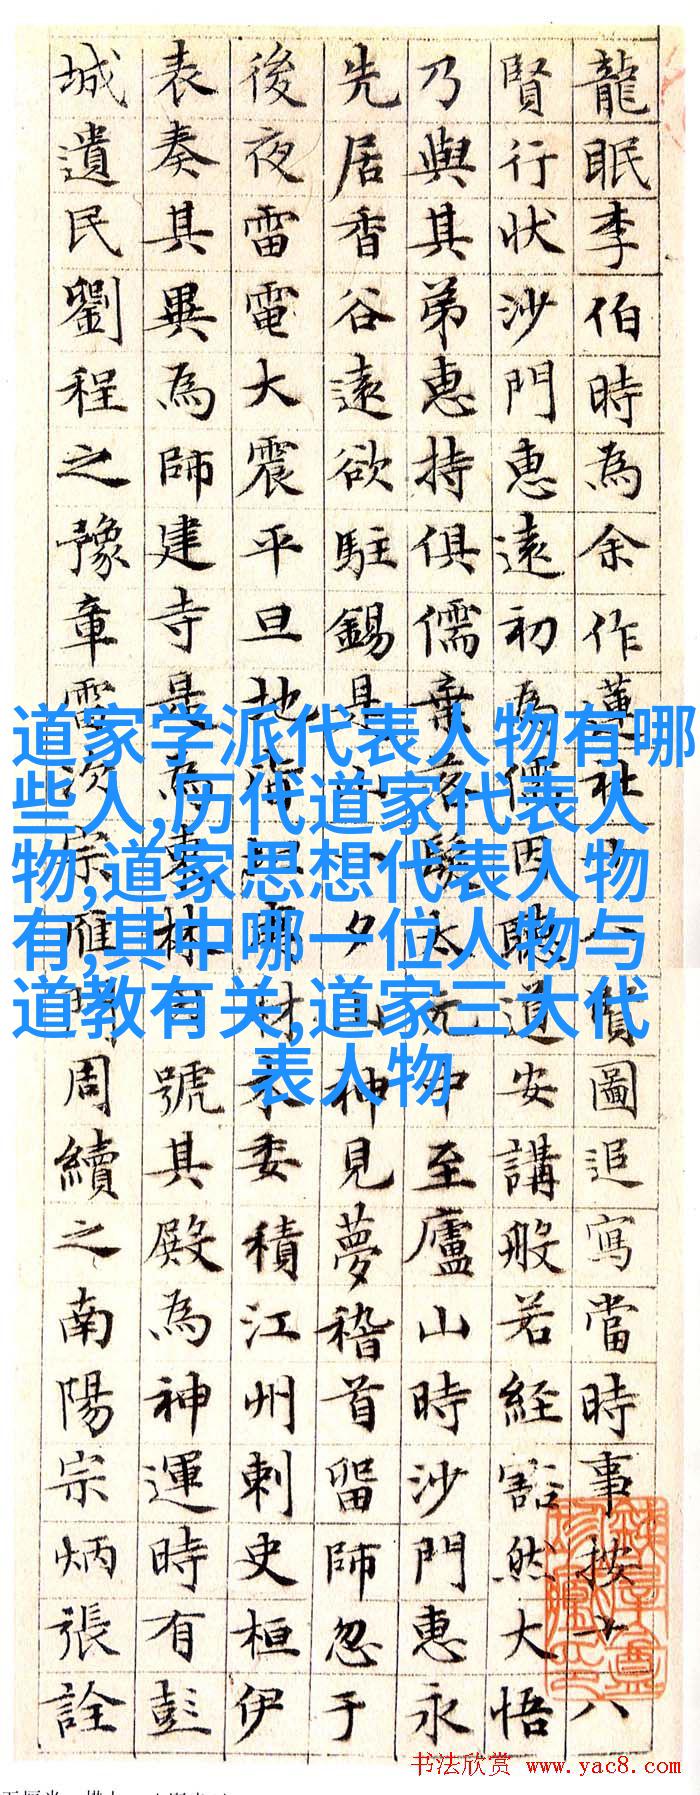 龍眠李伯時為余作蓮社十八賢圖追寫當時事按十八
賢行狀沙門惠遠初為儒因聽道安講般若経豁然大悟
乃與其弟惠持俱儒棄落髮太元中至廬山時沙門惠永
先居香谷遠欲駐錫是山一夕山神見夢稽首留師忽于
後夜雷電大震平旦地材木委積江州刺史桓伊
表奏其異為師建寺是為東林號其殿為神運時有彭
城遺民劉程之豫章雷次宗雁門周續之南陽宗炳張詮
道家学派代表人物有哪
些人,历代道家代表人
物,道家思想代表人物
有,其中哪一位人物与
道教有关,道家三大代
表人物
书法欣赏 www.yac8.com